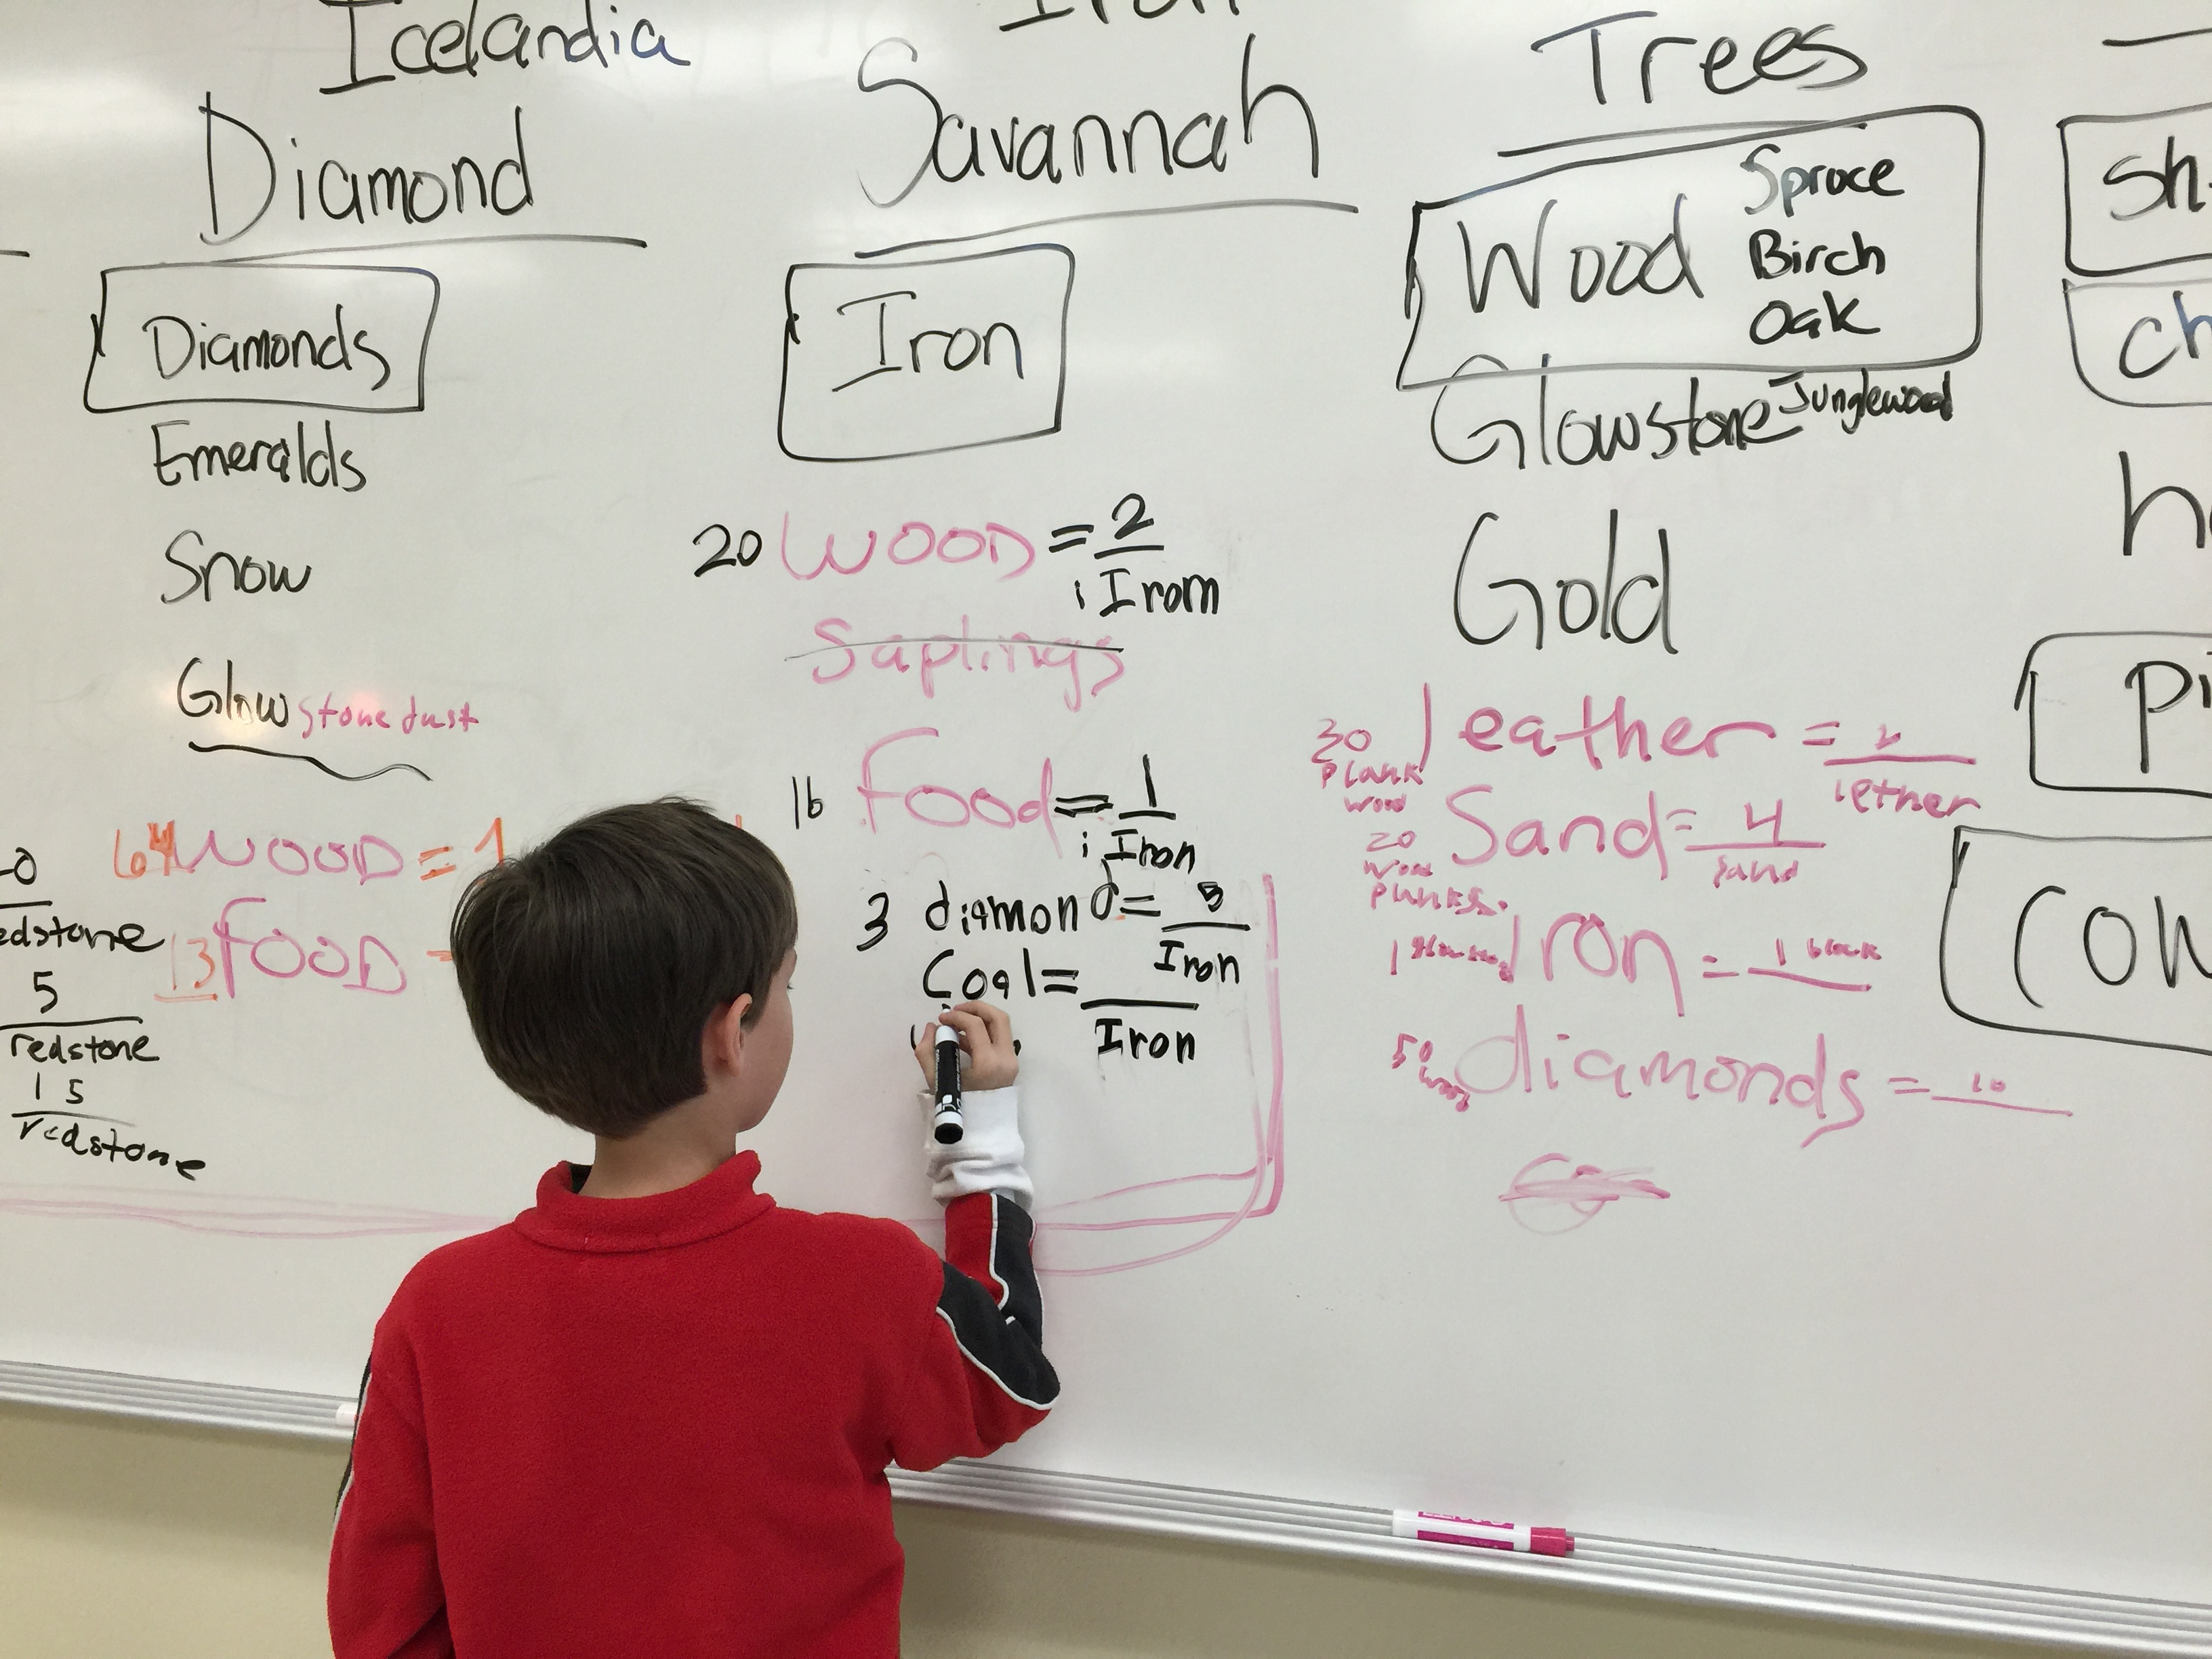 Icelandia
Diamond
Diamonds
Emeralds
Snow
Glowstone dust
64 WOOD = 1
13 FOOD
redstone
5
redstone
15
redstone
Iron
Savannah
Iron
20 WOOD = 2
Irom
Saplings
16 Food = 1
Iron
3 diamond = 5
Iron
Coal =
Iron
Trees
Wood Spruce
Birch
Oak
Junglewood
Glowstone
Gold
30 plank wood leather = 2
lether
20 wood planks Sand = 4
sand
1 Iron = 1 block
50 wood diamonds = 10
sh
ch
h
Pi
COW